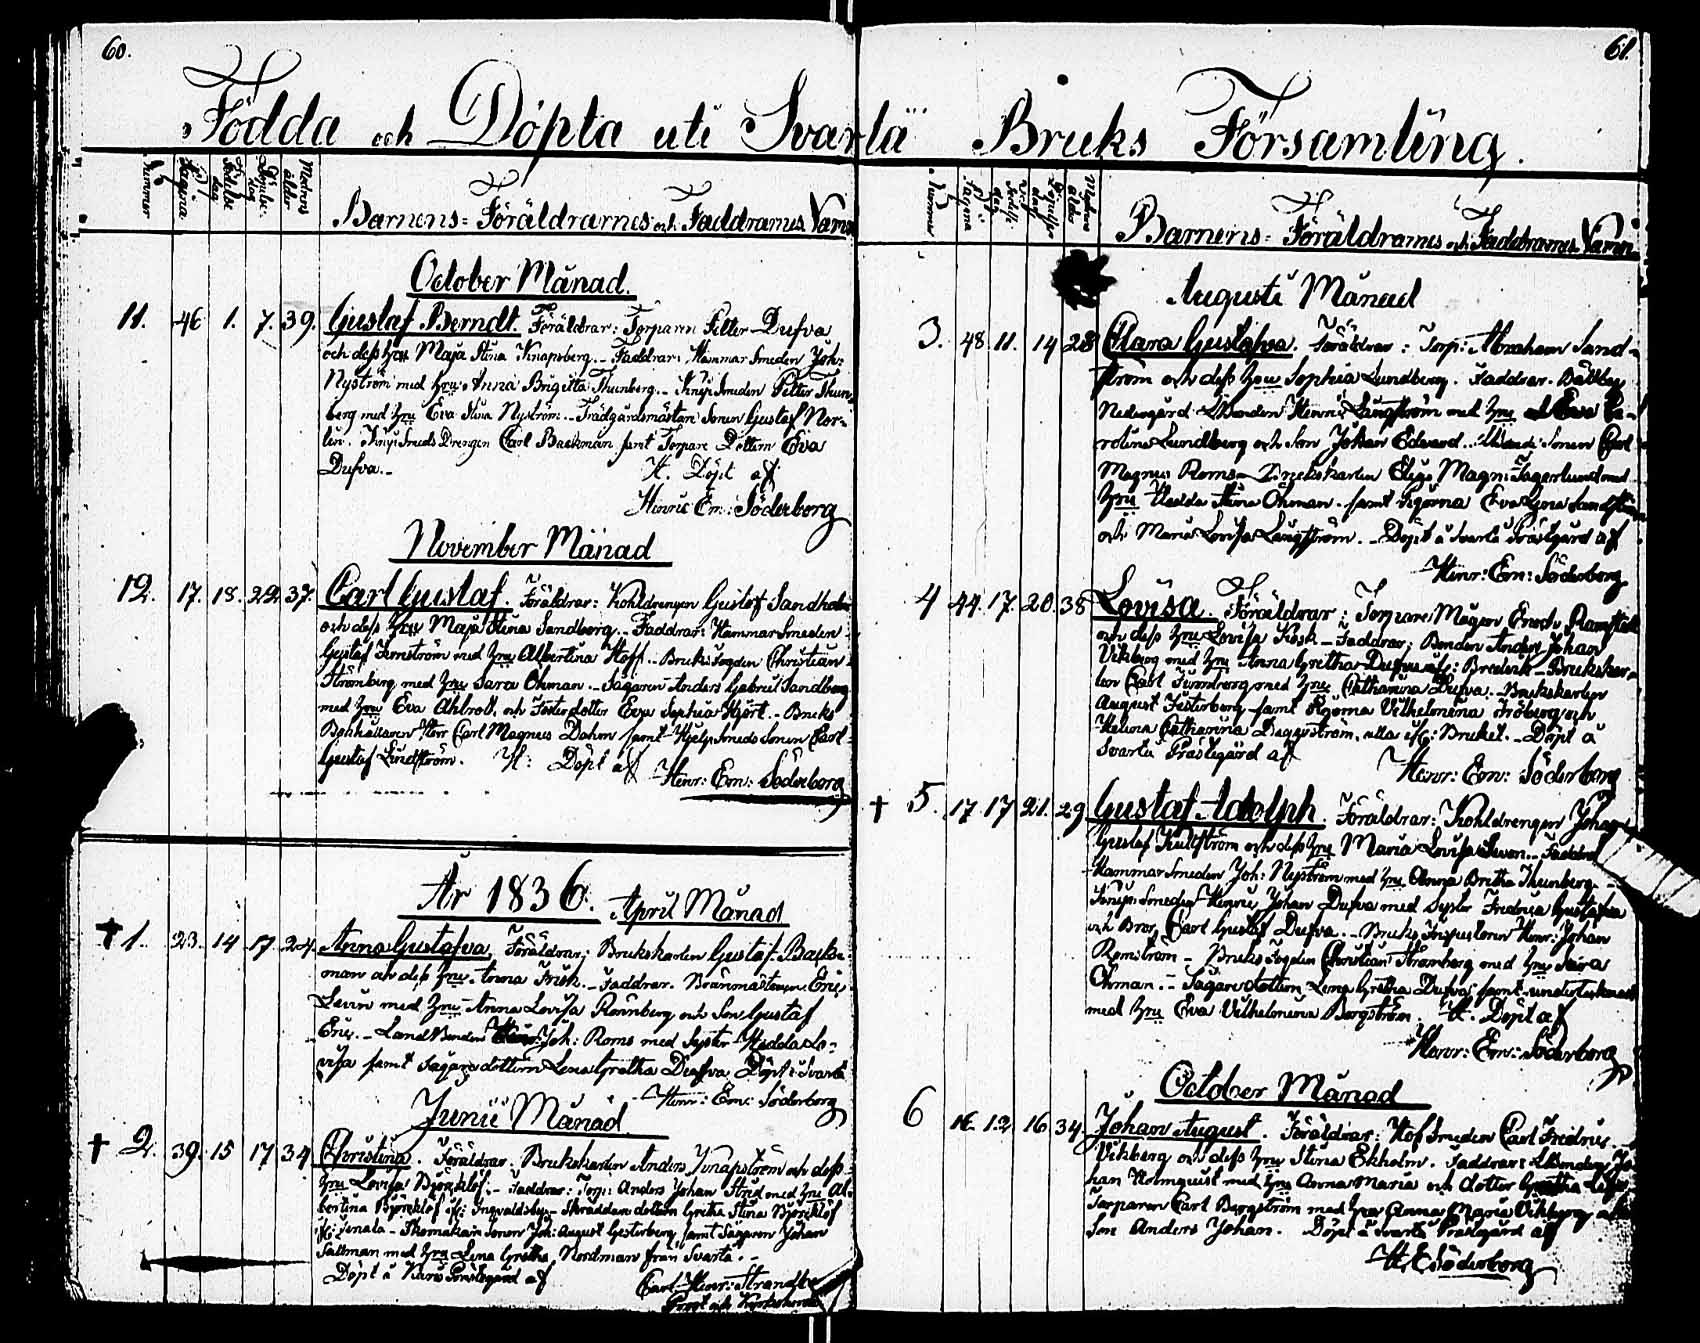 60.
Födda och Döpta uti Svartå
Nummer
Pagina
Födelse dag
Döpelse dag
Modrens ålder
Barnens= Föräldrarnes och Faddrarnes Namn
October Månad.
11. 46 1. 7. 39. Gustaf Berndt. Föräldrar: Torparen Petter Dufva
och dess hru Maja Stina Knapsberg. Faddrar: Hammar Smeden Joh:
Nyström med hru Anna Brigitta Thunberg. Knips Smeden Petter Thun
berg med hru Eva Stina Nyström. Trädgårdsmästare Sonen Gustaf Nor-
lin. Knips Smeds Drengen Carl Backman samt Torpare Dottern Eva
Dufva.- H. Döpt af
Hinric Em: Söderborg
November Månad
12. 17. 18. 22. 37. Carl Gustaf. Föräldrar: Kohldrengen Gustaf Sandholm
och dess hru Maja Stina Sandborg. Faddrar: Hammar Smeden
Gustaf med hru Albertina Hoff. Bruks Fogden Christian
Stromberg med hru Sara Öhman. Sågaren Anders Gabriel Sandberg
med hru Eva och Fosterdotter Eva Sophia Hjort. Bruks
Bokhållaren Herr Carl Magnus Dahm samt Hjelp Smeds Sonen Carl
Gustaf Lindström. H: Döpt af Henr: Em: Söderborg
År 1836. April Månad
† 1. 23. 14 17. 24. Anna Gustafva. Föräldrar: Brukskarlen Gustaf Back-
man och dess hru Anna Frisk. Faddrar. Brännmästaren Eric
Levin med hru Anna Lovisa Rönnberg och Son Gustaf
Eric. Land Bonden Joh: Roms med Syster Hedda Lo-
visa samt Sågare dottern Lena Gretha Dufva Döpt i Svartå
Henr: Em: Söderborg
Junii Månad
† 2. 39. 15 17 34 Christina. Föräldrar: Brukskarlen Anders Knapström och dess
hru Lovisa Björklöf. Faddrar: Torp: Anders Johan Strid med hru Al-
bertina Björklöf Ingvaldsby. Skräddare dottern Gretha Stina Björklöf
Skomakare Sonen Joh: August Gesterberg, samt Sågaren Johan
Saltman med hru Lena Gretha Nordman från Svartå.
Döpt å Karis Prästegård af Carl Henr: Strandbe
Prost och Kyrkoherde
61.
Bruks Församling.
Nummer
Pagina
Födelse dag
Döpelse dag
Modrens ålder
Barnens= Föräldrarnes och Faddrarnes Namn
Augusti Månad
3. 48. 11. 14 28 Clara Gustafva. Föräldrar: Torp: Abraham Sand-
ström och dess hru Sophia Lundberg. Faddrar.
Nedergård LBonden Henric Långström med hru Eva Ca-
rolina Lundberg och Son Johan Edvard. Sonen Carl
Magnus Roms. Brukskarlen Elias Magn: Fagerlund med
hru Hedda Stina Öhman. samt Pigorna Eva Lena Sandström
och Maria Lovisa Långström. Döpt å Svartå Prästgård af
Henr: Em: Söderborg
4 44. 17. 20. 38 Lovisa. Föräldrar: Torpare Mågen Enoch Ramstedt
och dess hru Lovisa Kosk. Faddrar; Bonden Anders Johan
Vikberg med hru Anna Gretha Dufva Brukskar-
len Carl med hru Catharina Dufva. Brukskarlen
August Festerberg samt Pigorna Vilhelmina Fröberg och
Helena Catharina Dagerström, alla ifr: Bruket. Döpt å
Svartå Prästegård af Henr: Em: Söderborg
† 5. 17. 17 21. 29 Gustaf Adolph. Föräldrar: Kohldrengen Johan
Gustaf Kullström och dess hru Maria Lovisa Faddrar
Hammar Smeden Joh: Nyström med hru Anna Britha Thunberg
Knips Smeden Henric Johan Dufva med Syster Fredrica Gustafva
och Bror Carl Gustaf Dufva. Bruks Inspectoren Henr: Johan
Romström. Bruks Fogden Christian Stromberg med hru Sara
Öhman. Sågare dottern Lena Gretha Dufva samt undertecknad
med hru Eva Vilhelmina Bergström. H. Döpt af
Henr: Em: Söderborg
October Månad
6 16. 12 16 34. Johan August. Föräldrar: Hof Smeden Carl Fredric
Vikberg och dess hru Stina Ekholm. Faddrar: LBonden Jo-
han Holmquist med hru Anna Maria och dotter Gretha
Torparen Carl Bergström med hru Anna Maria Vikberg
Son Anders Johan. Döpt å Svartå Prästgård af
H. E. Söderborg